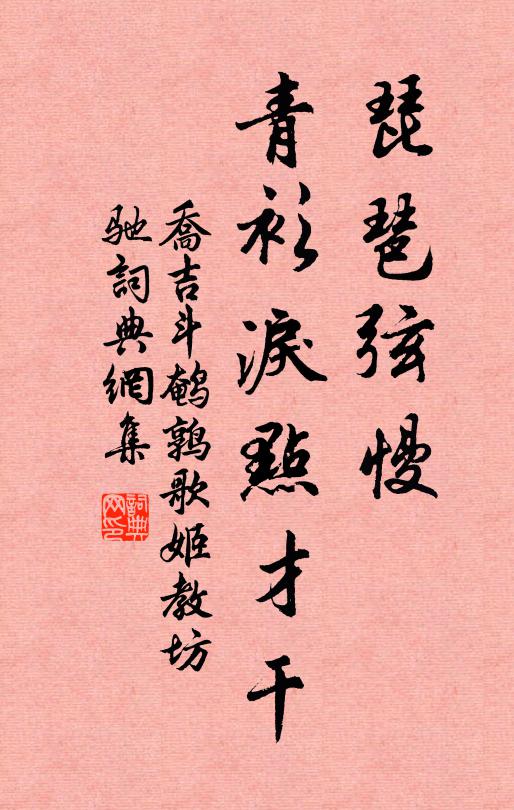 琵琶弦慢
青衫淚點才干
喬吉斗鵪鶉歌姬教坊
馳詞典網集
詞典網印